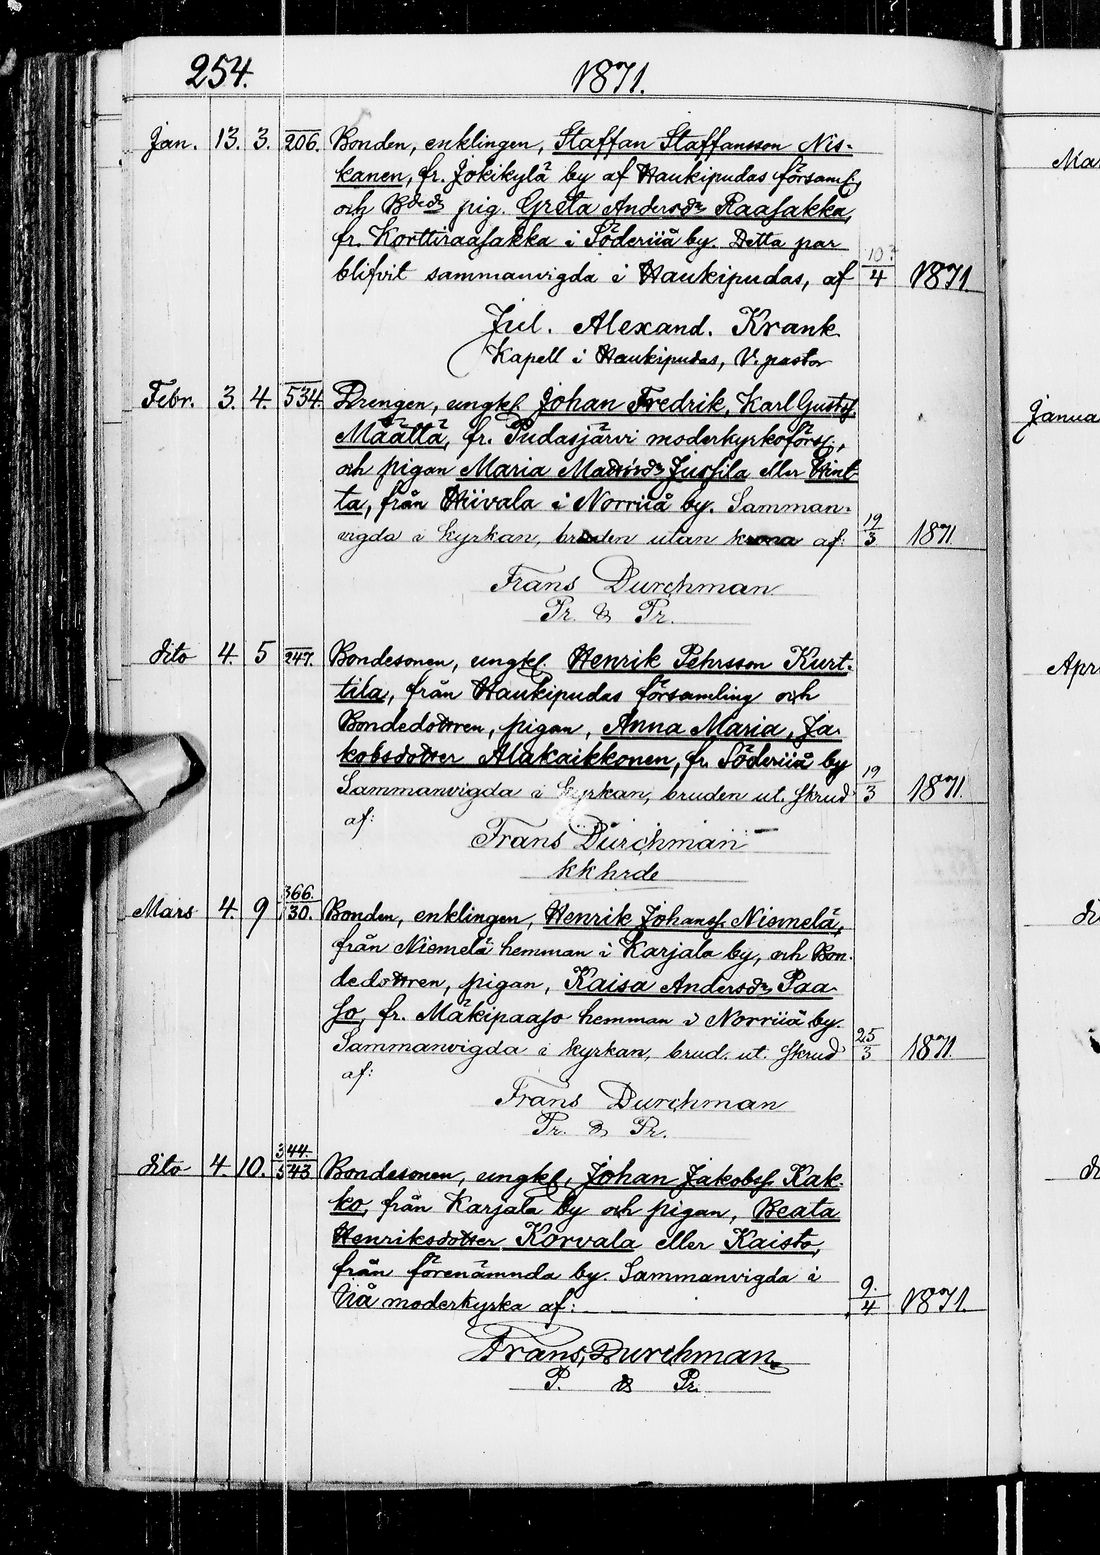 254. 1871.
Jan. 13. 3. 206. Bonden, enklingen, Staffan Staffansson Nis-
kanen, fr. Jokikylä by af Haukipudas församl.
och Bdedr pig. Greta Andersdr Raasakka,
fr. Korttiraasakka i Söderiiå by. Detta par
blifvit sammanvigda i Haukipudas, af 10/4 1871.
Jul. Alexand. Krank
Kapell i Haukipudas, V. pastor
Febr. 3. 4. 534. Drengen, ungkl. Johan Fredrik, Karl Gustafs.
Määttä, fr. Pudasjärvi moderkyrkoförs.,
och pigan Maria Jussila eller Hint-
ta, från Hiivala i Norriiå by. Samman-
vigda i kyrkan, bruden utan krona af: 19/3 1871
Frans Durchman
Pr. & Pr.
dito 4. 5 247. Bondesonen, ungkl. Henrik Pehrsson Kurt-
tila, från Haukipudas församling och
Bondedottren, pigan, Anna Maria, Ja-
kobsdotter Alakaikkonen, fr. Söderiiå by
Sammanvigda i kyrkan, bruden ut. skrud 19/3 1871.
af:
Frans Durchman
kkhrde
Mars 4. 9 366. 30. Bonden, enklingen, Henrik Johanss. Niemelä,
från Niemelä hemman i Karjala by, och Bon-
dedottren, pigan, Kaisa Andersdr Paa-
so, fr. Mäkipaaso hemman i Norriiå by.
Sammanvigda i kyrkan, brud. ut. skrud 25/3 1871.
af:
Frans Durchman
Pr. & Pr.
dito 4. 10. 344. 543 Bondesonen, ungkl, Johan Jakobss. Kak-
ko, från Karjala by och pigan, Beata
Henriksdotter Korvala eller Kaisto,
från förenämnda by. Sammanvigda i
Iiå moderkyrka af: 9./4 1871.
Frans Durchman.
P. & Pr.
Janua
Apri